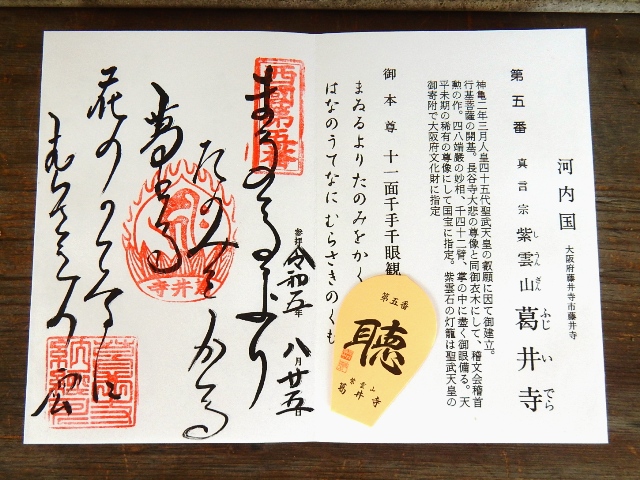 河内国 大阪府藤井寺市藤井寺
第五番 真言宗 紫雲山 葛井寺
し うん ざん ふじ い でら
神亀二年三月人皇四十五代聖武天皇の叡願に因て御建立。
行基菩薩の開基。長谷寺大悲の尊像と同御衣木にして、稽文会稽首
勲の作。四八端厳の妙相、千四十二臂、掌の中に盡く御眼備る。天
平末期の稀有の尊像にして国宝に指定。紫雲石の灯籠は聖武天皇の
御寄附で大阪府文化財に指定
御本尊 十一面千手千眼観
まゐるよりたのみをかく
はなのうてなに むらさきのくも
第五番
聴
紫雲山
葛井寺
西國第五番
参拝 令和五年 八月廿五日
まゐるより
たのみをかくる
葛井寺
花のうてなに
むらさきの雲
葛井寺